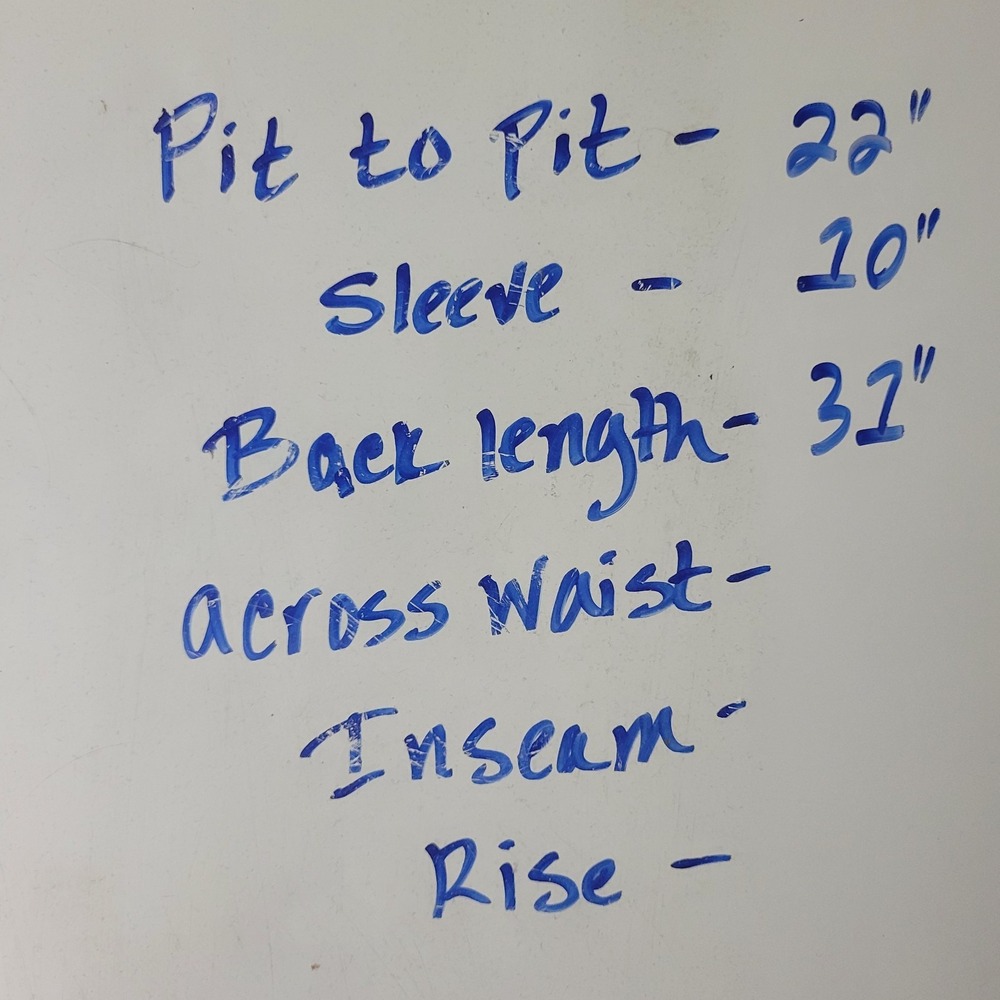 Pit to Pit - 22"
Sleeve - 10"
Back length - 31"
across Waist -
Inseam -
Rise -